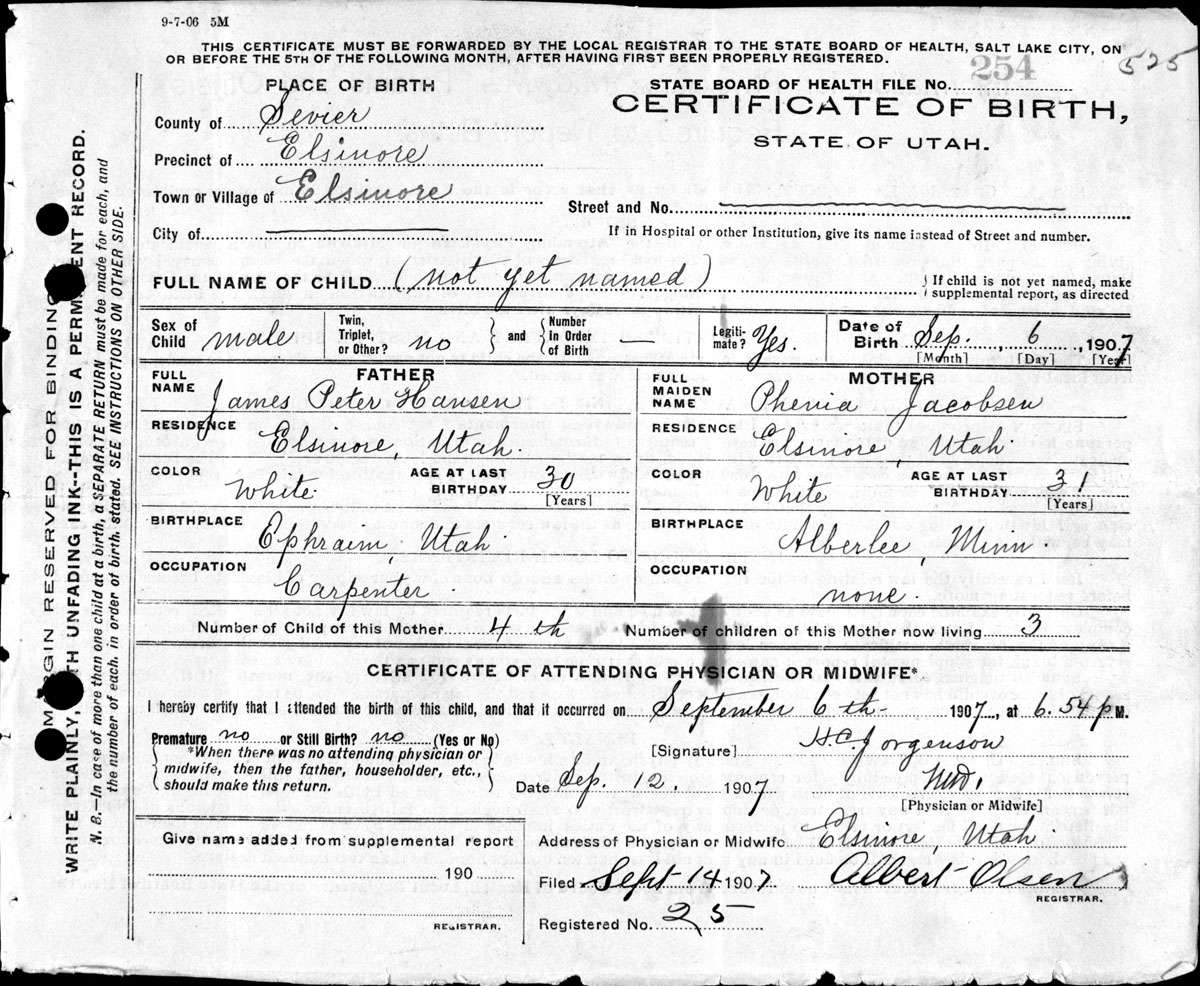 9-7-06 5M
THIS CERTIFICATE MUST BE FORWARDED BY THE LOCAL REGISTRAR TO THE STATE BOARD OF HEALTH, SALT LAKE CITY, ON
OR BEFORE THE 5TH OF THE FOLLOWING MONTH, AFTER HAVING FIRST BEEN PROPERLY REGISTERED.
525
PLACE OF BIRTH
County of Sevier
Precinct of Elsinore
Town or Village of Elsinore
City of
STATE BOARD OF HEALTH FILE No. 254
CERTIFICATE OF BIRTH,
STATE OF UTAH.
Street and No.
If in Hospital or other Institution, give its name instead of Street and number.
FULL NAME OF CHILD (not yet named)
If child is not yet named, make
supplemental report, as directed
Sex of Child male
Twin, Triplet, or Other? no
and Number in Order of Birth —
Legitimate? Yes.
Date of Birth Sep. 6, 1907
[Month] [Day] [Year]
FATHER
FULL NAME James Peter Hansen
RESIDENCE Elsinore, Utah.
COLOR White. AGE AT LAST BIRTHDAY 30
[Years]
BIRTHPLACE Ephraim, Utah.
OCCUPATION Carpenter.
MOTHER
FULL MAIDEN NAME Phenia Jacobsen
RESIDENCE Elsinore, Utah
COLOR White AGE AT LAST BIRTHDAY 31
[Years]
BIRTHPLACE Alberlee, Minn.
OCCUPATION none.
Number of Child of this Mother 4th Number of children of this Mother now living 3
CERTIFICATE OF ATTENDING PHYSICIAN OR MIDWIFE*
I hereby certify that I attended the birth of this child, and that it occurred on September 6th 1907, at 6.54 P M.
Premature no or Still Birth? no (Yes or No)
*When there was no attending physician or
midwife, then the father, householder, etc.,
should make this return.
[Signature] H.C. Jorgenson
Date Sep. 12, 1907 M.D.
[Physician or Midwife]
Give name added from supplemental report
190
REGISTRAR.
Address of Physician or Midwife Elsinore, Utah.
Filed Sept 14 1907 Albert Olsen
REGISTRAR.
Registered No. 25
MARGIN RESERVED FOR BINDING
WRITE PLAINLY, WITH UNFADING INK--THIS IS A PERMANENT RECORD.
N. B.—In case of more than one child at a birth, a SEPARATE RETURN must be made for each, and
the number of each, in order of birth, stated. SEE INSTRUCTIONS ON OTHER SIDE.